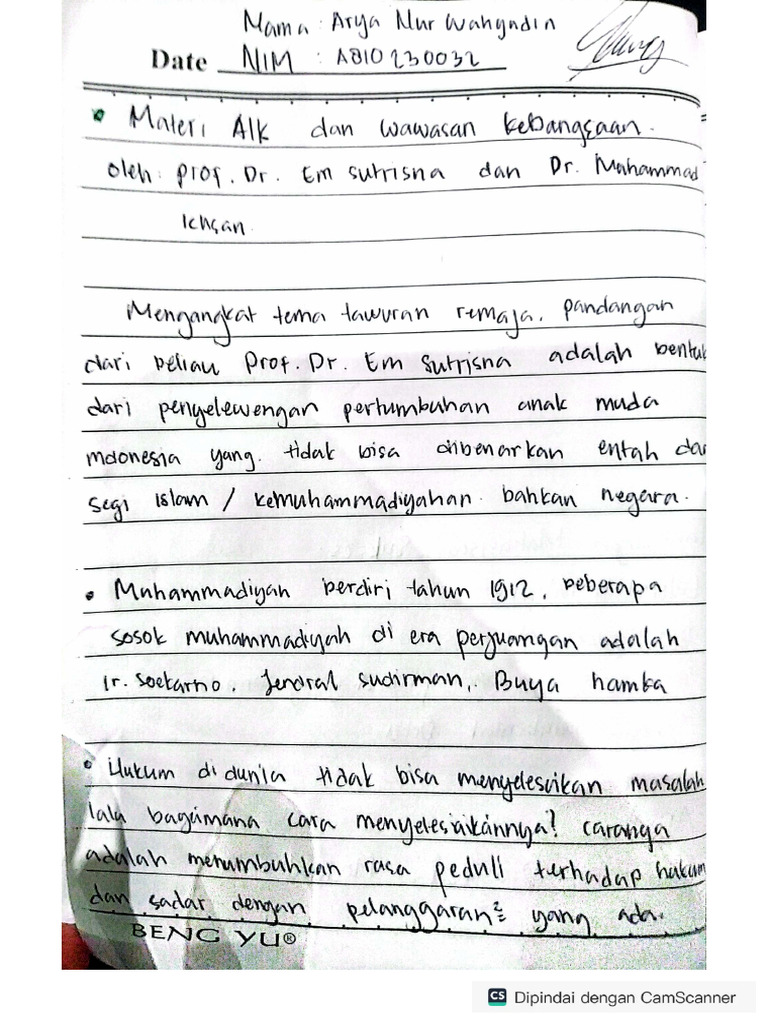 Nama : Arya Nur Wahyudin
Date NIM : A810230032
• Materi AIK dan wawasan kebangsaan.
oleh : Prof. Dr. Em Sutrisna dan Dr. Muhammad
Ichsan.
Mengangkat tema tawuran remaja, pandangan
dari beliau Prof. Dr. Em Sutrisna adalah bentuk
dari penyelewengan pertumbuhan anak muda
Indonesia yang tidak bisa dibenarkan entah dari
segi Islam / kemuhammadiyahan bahkan negara.
• Muhammadiyah berdiri tahun 1912, beberapa
sosok muhammadiyah di era perjuangan adalah
Ir. Soekarno, Jendral sudirman, Buya hamka
• Hukum di dunia tidak bisa menyelesaikan masalah
lalu bagaimana cara menyelesaikannya? caranya
adalah menumbuhkan rasa peduli terhadap hukum
dan sadar dengan pelanggaran² yang ada.
BENG YU®
CS Dipindai dengan CamScanner